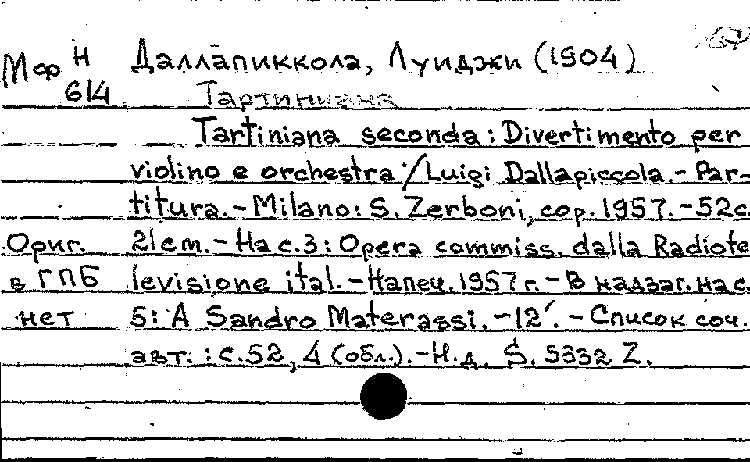 Мф Н Даллапиккола, Луиджи (1904)
614 Тартиниана
Tartiniana seconda: Divertimento per
violino e orchestra / Luigi Dallapiccola. - Par-
titura. - Milano: S. Zerboni, cop. 1957. - 52 с.
Ориг. 21 cm. - На с. 3: Opera commiss. dalla Radiote
в ГПБ levisione ital. - Напеч. 1957 г. - В надзаг. на с.
нет 5: A Sandro Materassi. - 12′. - Список соч.
авт.: с. 52, 4 (обл.). - Н.д. S. 5332 Z.